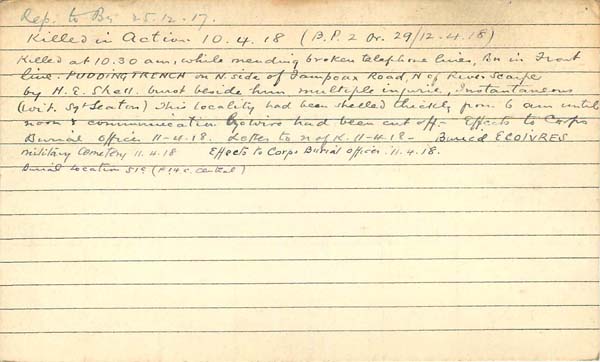 Rep. to Bn 25.12.17.
Killed in Action 10.4.18 (B.P.2 Or. 29/12-4.18)
Killed at 10.30 am, while mending broken telephone lines, Bn in Front
line. PUDDING TRENCH on N. side of Fampoux Road, N of River Scarpe
by H.E. Shell. burst beside him multiple injuries, Instantaneous
(wit. Sgt Seaton) This locality had been shelled thickly from 6 am until
noon & communication by wire had been cut off - Effects to Corps
Burial officer 11-4.18. Letter to n of K. 11-4.18 - Buried ECOIVRES
military Cemetery 11.4.18 Effects to Corps Burial Officer. 11.4.18.
Burial Location 51c (F.14 c. central)